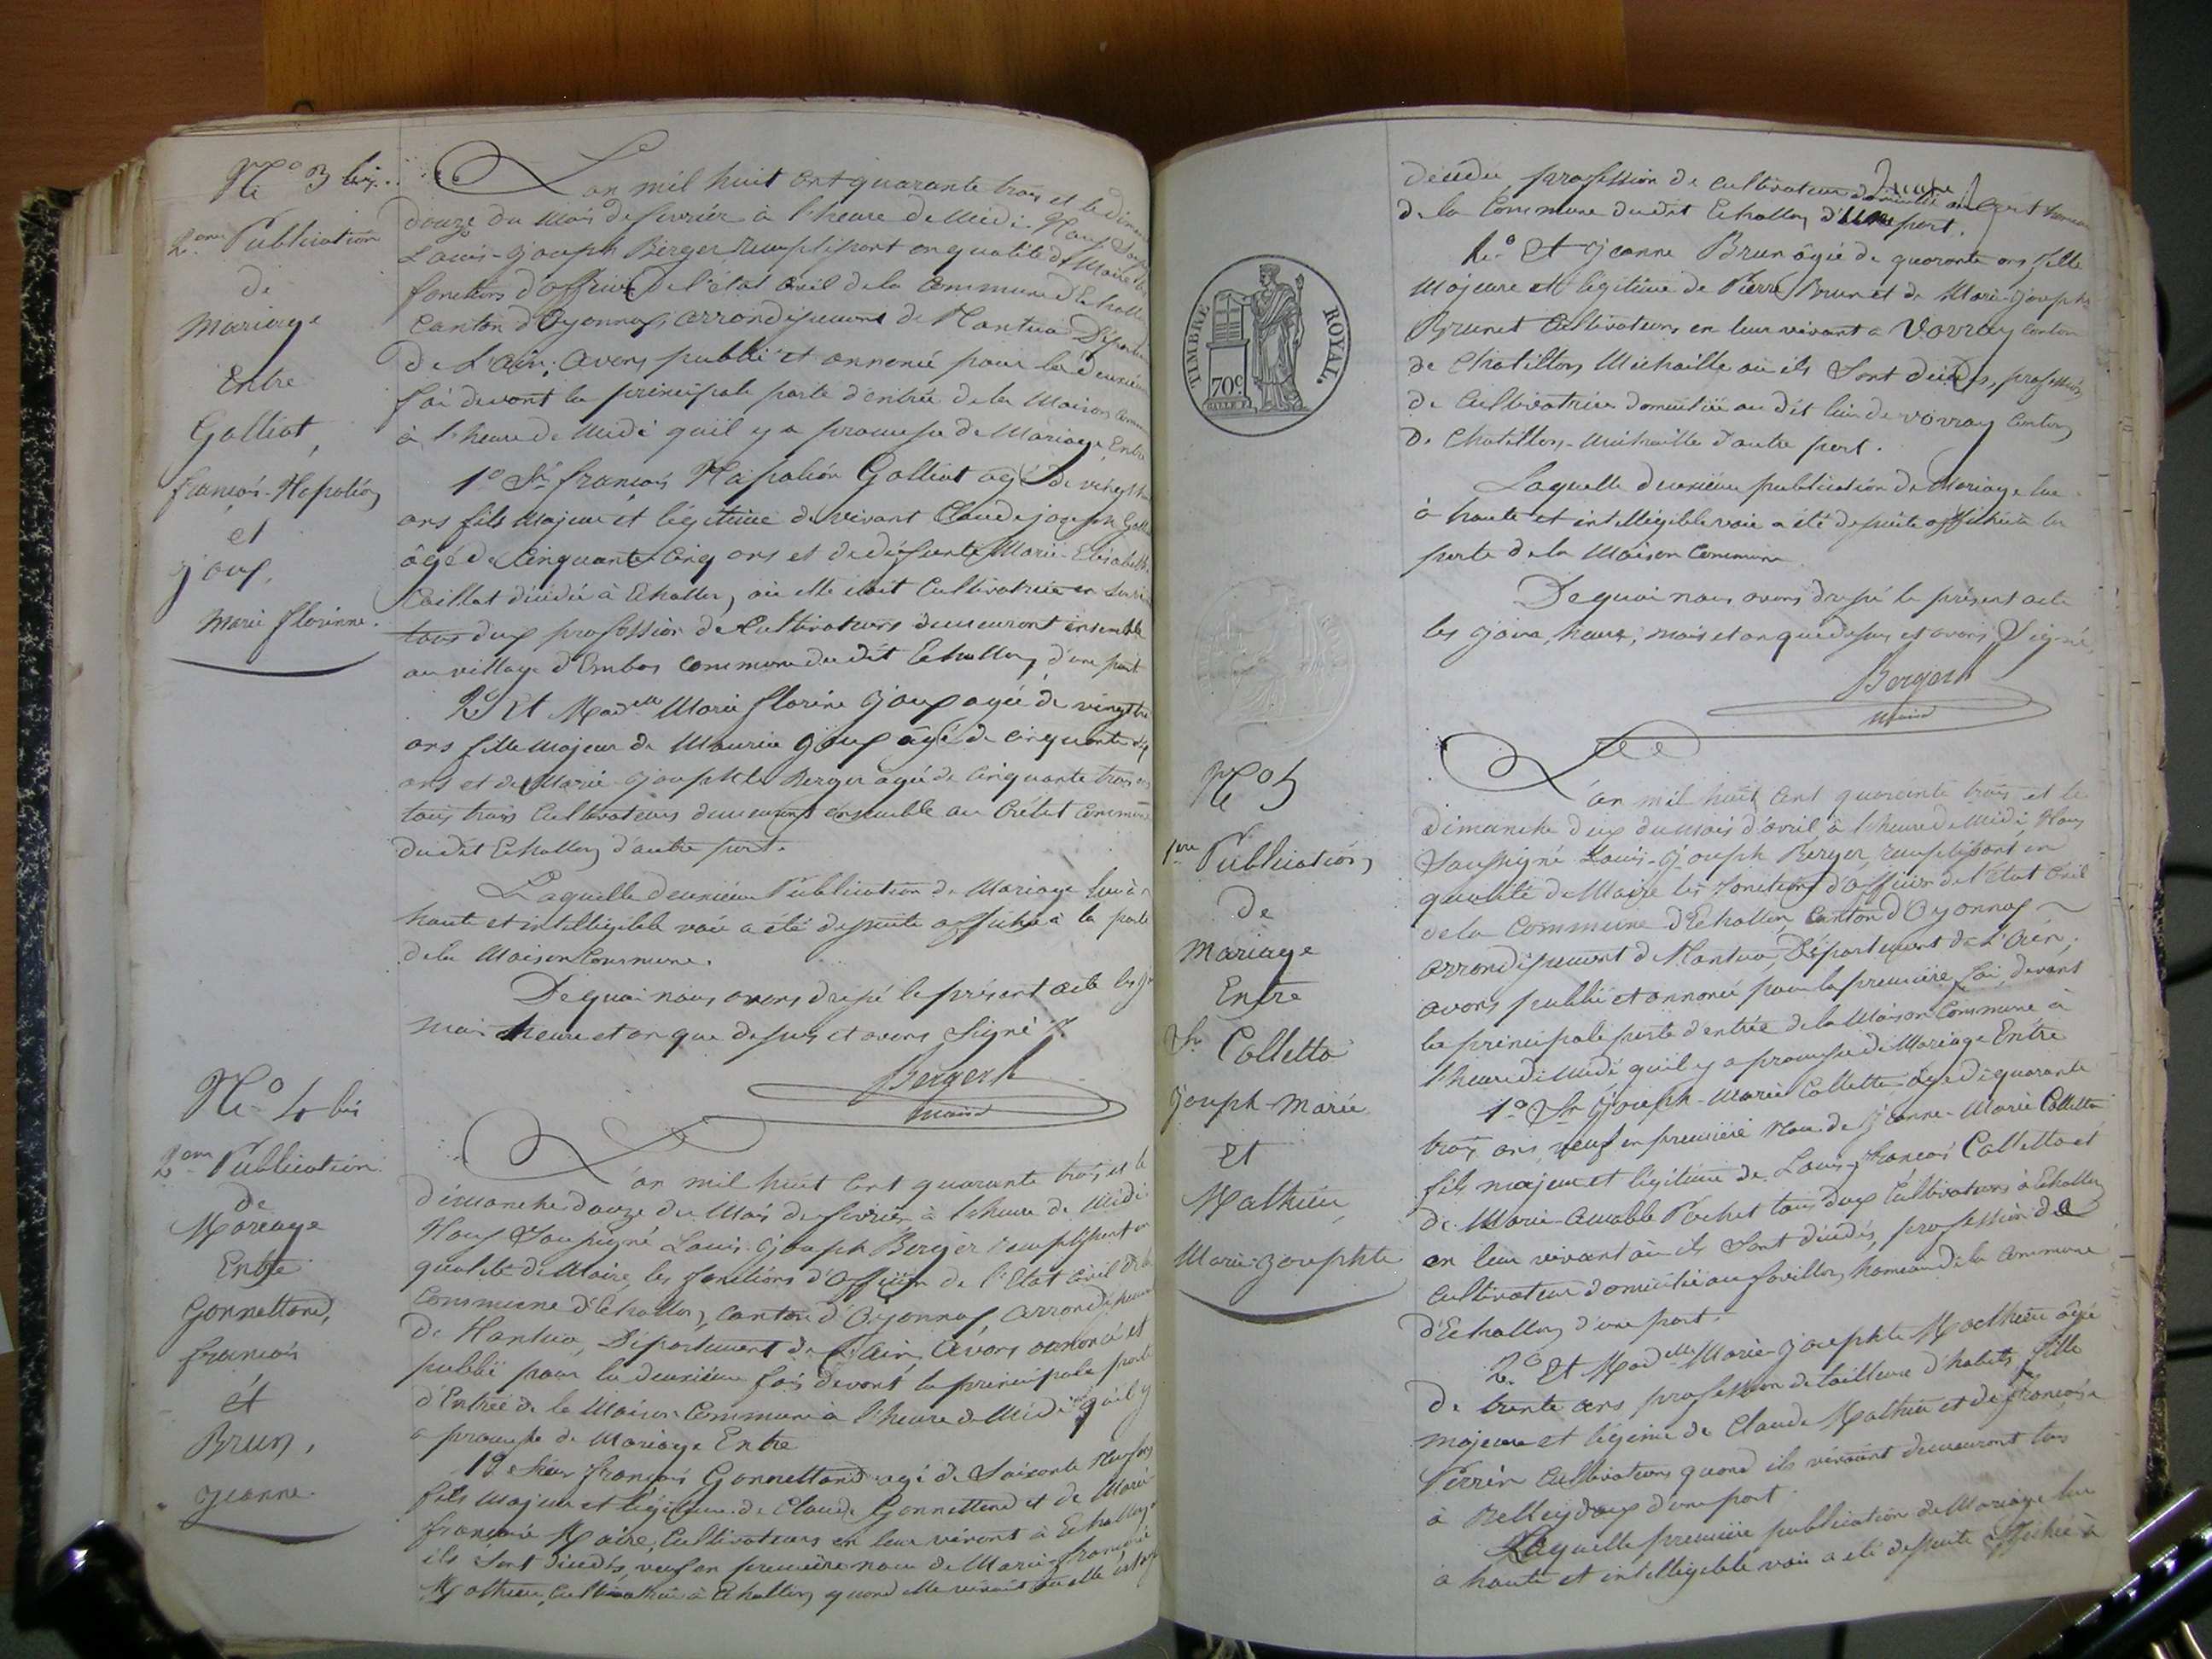 No 3 bis.
2eme Publication
de
Mariage
Entre
Galliot,
françois-Napoléon
et
joux,
Marie florinne.
L'an mil huit cent quarante trois et le diman
douze du Mois de fevrier à l'heure de Midi. Nous Sous
Louis-Joseph Berger, remplissant en qualité de Maire les
fonctions d'officier de l'état Civil de la Commune d'Echallon
Canton d'Oyonnax, arrondissement de Nantua Départem
De L'ain, avons publié et annoncé pour la deuxième
fois devant la principale porte d'entrée de la Maison Commu
à l'heure de Midi qu'il y a promesse de Mariage Entre
1º Sr. françois Napoléon Galliot agé de vingt
ans fils Majeur et légitime de vivant Claude joseph Gall
âgé de Cinquante Cinq ans et de défunte Marie-Elisabeth
Caillat décédée à Echallon, où elle était Cultivatrice en
tous deux profession de Cultivateurs demeurant ensemble
au village d'Embos Commune du dit Echallon, d'une part
2º Et Madelle Marie florine joux agée de vingt
ans fille Majeur de Maurice joux âgé de Cinquante
ans et de Marie-josephte Berger agée de Cinquante trois ans
tous trois Cultivateurs demeurant ensemble au Crétet Commune
du dit Echallon, d'autre part.
Laquelle deuxième Publication de Mariage lue à
haute et intelligible voie a été de suite affichée à la porte
de la Maison Commune.
De quoi nous avons dressé le présent acte les jr
mois heure et an que dessus et avons Signé
Berger L
Maire
No 4 bis
2eme Publication
de
Mariage
Entre
Gonnettand,
françois
et
Brun,
jeanne.
L'an mil huit Cent quarante trois, et le
dimanche douze du Mois de fevrier à l'heure de Midi
Nous Soussigné Louis-Joseph Berger remplissant en
qualité de Maire les fonctions d'officier de l'Etat Civil de la
Commune d'Echallon, Canton d'Oyonnax, arrondissement
de Nantua, Département de L'ain, avons annoncé et
publié pour la deuxième fois devant la principale porte
d'Entrée de la Maison Commune à l'heure de Midi qu'il y
a promesse de Mariage Entre
1º Sieur françois Gonnettand agé de Soixante Neuf ans
fils Majeur et légitime de Claude Gonnettand et de Marie
françoise Maire, Cultivateurs en leur vivant à Echallon
ils Sont décédés, veuf en première noce de Marie-françoise
Mathieu, Cultivatrice à Echallon, quand elle vivait où elle est
décédée profession de Cultivateur
de la Commune du dit Echallon d'une part.
2º Et jeanne Brun âgée de quarante ans fille
Majeure et légitime de Pierre Brun et de Marie-josephte
Brunet Cultivateurs en leur vivant à Vovray Canton
de Chatillon Michaille où ils Sont décédés, profession
de Cultivatrice domiciliée au dit lieu de vovray Canton
de Chatillon-Michaille d'autre part.
Laquelle deuxième publication de Mariage lue
à haute et intelligible voie a été de suite affichée à la
porte de la Maison Commune
De quoi nous avons dressé le présent acte
les jour, heure, mois et an que dessus et avons Signé,
Berger L
Maire
TIMBRE ROYAL.
70c.
No 5
1ere Publication
de
Mariage
Entre
Sr. Colletta
joseph-Marie
Et
Mathieu
Marie-josephte
L'an mil huit Cent quarante trois et le
dimanche deux du Mois d'avril à l'heure de Midi, Nous
Soussigné Louis-joseph Berger, remplissant en
qualité de Maire les fonctions d'officier de l'état Civil
de la Commune d'Echallon, Canton d'Oyonnax
arrondissement de Nantua, Département de L'ain,
avons publié et annoncé pour la première foi, devant
la principale porte d'entrée de la Maison Commune à
l'heure de Midi qu'il y a promesse de Mariage Entre
1º Sr joseph-Marie Colletta âgé de quarante
trois ans, veuf en première noce de jeanne-Marie Colletta
fils majeur et légitime de Louis-françois Colletta et
de Marie-Amable Pochet tous deux Cultivateurs à Echallon
en leur vivant où ils Sont décédés, profession de
Cultivateur domicilié au favillon, hameau de la Commune
d'Echallon, d'une part.
2º Et Madelle Marie-josephte Mathieu agée
de trente ans profession de tailleuse d'habits, fille
majeure et légitime de Claude Mathieu et de françoise
Perrin Cultivateurs quand ils vivaient demeurant tous
à Belleydoux d'une part.
Laquelle première publication de Mariage lue
à haute et intelligible voie a été de suite affichée à